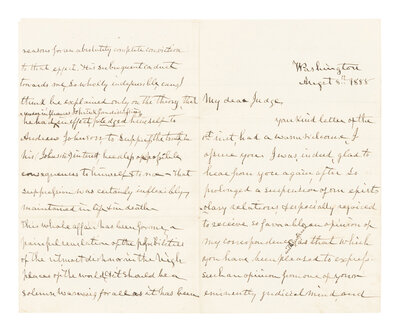 Washington
Augst 8th 1888
My dear Judge,
your kind letter of the
1st inst, had a warm welcome, I
assure you. I was indeed glad to
hear from you again after so
prolonged a suspension of our epist
olary relations & especially rejoiced
to receive so favorable an opinion of
my correspondence as that which
you have been pleased to express.
such an opinion from one of your
eminently judicial mind and
reasons for an absolutely complete conviction
to that effect. His subsequent conduct
towards me, so wholly indefensible can, I
think be explained only on the theory that
he had in effect pledged himself to
Andrew Johnson to suppress the truth in
his (Johnson's) interest
consequences to himself & to me. That
suppression was certainly
maintained in life & in death.
This whole affair has been for me, a
painful revelation of the possibilities
of the utmost in the high
places of the world, & it should be a
solemn warning for all as it has been